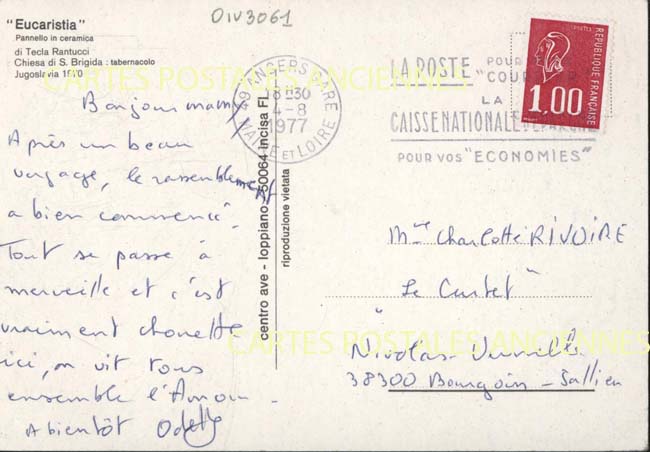 DIV3061
"Eucaristia"
Pannello in ceramica
di Tecla Rantucci
Chiesa di S. Brigida : tabernacolo
Jugoslavia 1970
CARTES POSTALES ANCIENNES
Bonjour mamy
Après un beau
voyage, le rassemblement
a bien commencé.
Tout se passe à
merveille et c'est
vraiment chouette
ici, on vit tous
ensemble l'Amour.
A bientôt Odette
centro ave - loppiano - 50064 Incisa FI
riproduzione vietata
49 ANGERS GARE
18H30
4-8
1977
MAINE ET LOIRE
LA POSTE POUR
"COUR
LA
CAISSE NATIONALE D'EPARGNE
POUR VOS "ECONOMIES"
REPUBLIQUE FRANÇAISE
1,00
Mme Charlotte RIVOIRE
Le
Nivolas-Vermelle
38300 Bourgoin-Jallieu
CARTES POSTALES ANCIENNES